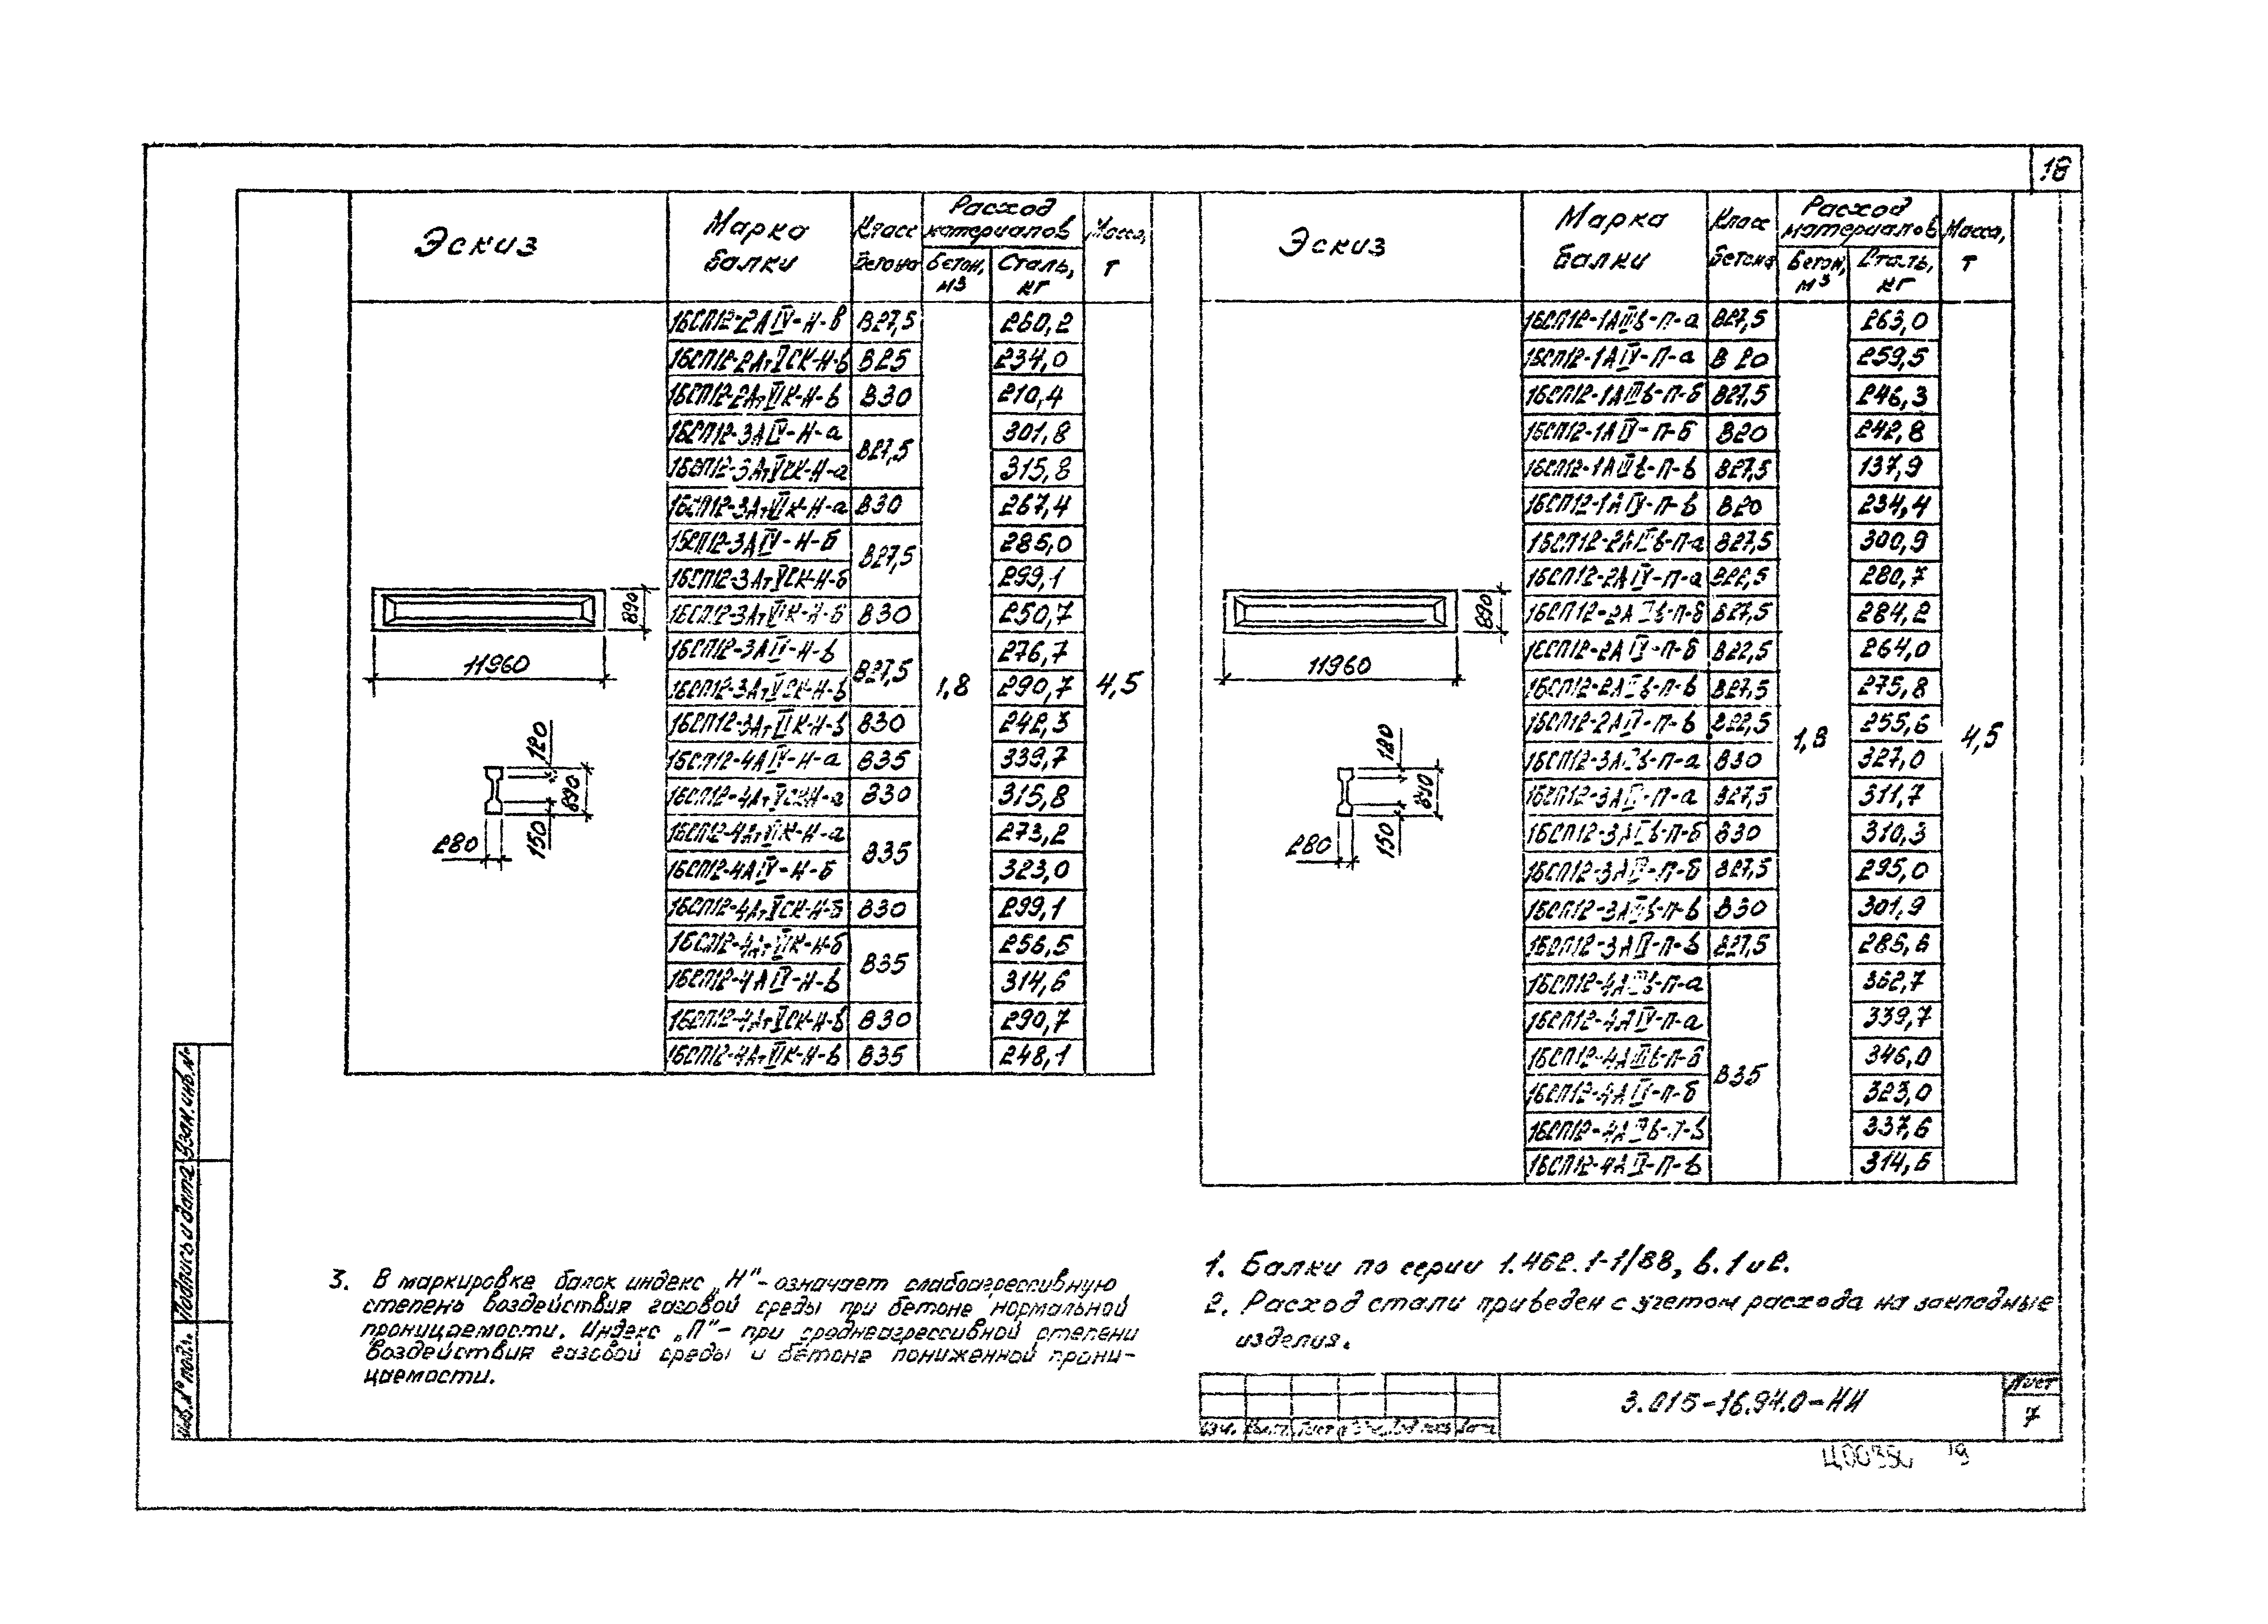 18
Эскиз Марка балки Класс бетона Расход материалов Бетон, м3 Сталь, кг Масса, т
1БСП12-2АIV-Н-в В27,5 260,2
1БСП12-2АтVСК-Н-в В25 234,0
1БСП12-2АтVIК-Н-в В30 210,4
1БСП12-3АIV-Н-а В27,5 301,8
1БСП12-3АтVСК-Н-а 315,8
1БСП12-3АтVIК-Н-а В30 267,4
1БСП12-3АIV-Н-б В27,5 285,0
1БСП12-3АтVСК-Н-б 299,1
1БСП12-3АтVIК-Н-б В30 250,7
1БСП12-3АIV-Н-в В27,5 276,7
1БСП12-3АтVСК-Н-в 290,7
1БСП12-3АтVIК-Н-в В30 242,3
1БСП12-4АIV-Н-а В35 339,7
1БСП12-4АтVСКН-а В30 315,8
1БСП12-4АтVIК-Н-а В35 273,2
1БСП12-4АIV-Н-б 323,0
1БСП12-4АтVСК-Н-б В30 299,1
1БСП12-4АтVIК-Н-б В35 256,5
1БСП12-4АIV-Н-в 314,6
1БСП12-4АтVСК-Н-в В30 290,7
1БСП12-4АтVIК-Н-в В35 248,1
1,8
4,5
890
11960
120
890
150
280
Эскиз Марка балки Класс бетона Расход материалов Бетон, м3 Сталь, кг Масса, т
1БСП12-1АIIIв-П-а В27,5 263,0
1БСП12-1АIV-П-а В20 259,5
1БСП12-1АIIIв-П-б В27,5 246,3
1БСП12-1АIV-П-б В20 242,8
1БСП12-1АIIIв-П-в В27,5 137,9
1БСП12-1АIV-П-в В20 234,4
1БСП12-2АIIIв-П-а В27,5 300,9
1БСП12-2АIV-П-а В22,5 280,7
1БСП12-2АIIIв-П-б В27,5 284,2
1БСП12-2АIV-П-б В22,5 264,0
1БСП12-2АIIIв-П-в В27,5 275,8
1БСП12-2АIV-П-в В22,5 255,6
1БСП12-3АIIIв-П-а В30 327,0
1БСП12-3АIV-П-а В27,5 311,7
1БСП12-3АIIIв-П-б В30 310,3
1БСП12-3АIV-П-б В27,5 295,0
1БСП12-3АIIIв-П-в В30 301,9
1БСП12-3АIV-П-в В27,5 286,6
1БСП12-4АIIIв-П-а В35 362,7
1БСП12-4АIV-П-а 339,7
1БСП12-4АIIIв-П-б 346,0
1БСП12-4АIV-П-б 323,0
1БСП12-4АIIIв-П-в 337,6
1БСП12-4АIV-П-в 314,6
1,8
4,5
890
11960
120
890
150
280
3. В маркировке балок индекс „Н"- означает слабоагрессивную
степень воздействия газовой среды при бетоне нормальной
проницаемости. Индекс „П"- при среднеагрессивной степени
воздействия газовой среды и бетоне пониженной прони-
цаемости.
1. Балки по серии 1.462.1-1/88, в.1 и 2.
2. Расход стали приведен с учетом расхода на закладные
изделия.
Инв.№ подл. Подпись и дата Взам.инв.№
3.015-16.94.0-НИ
Лист
7
Ц00350 19